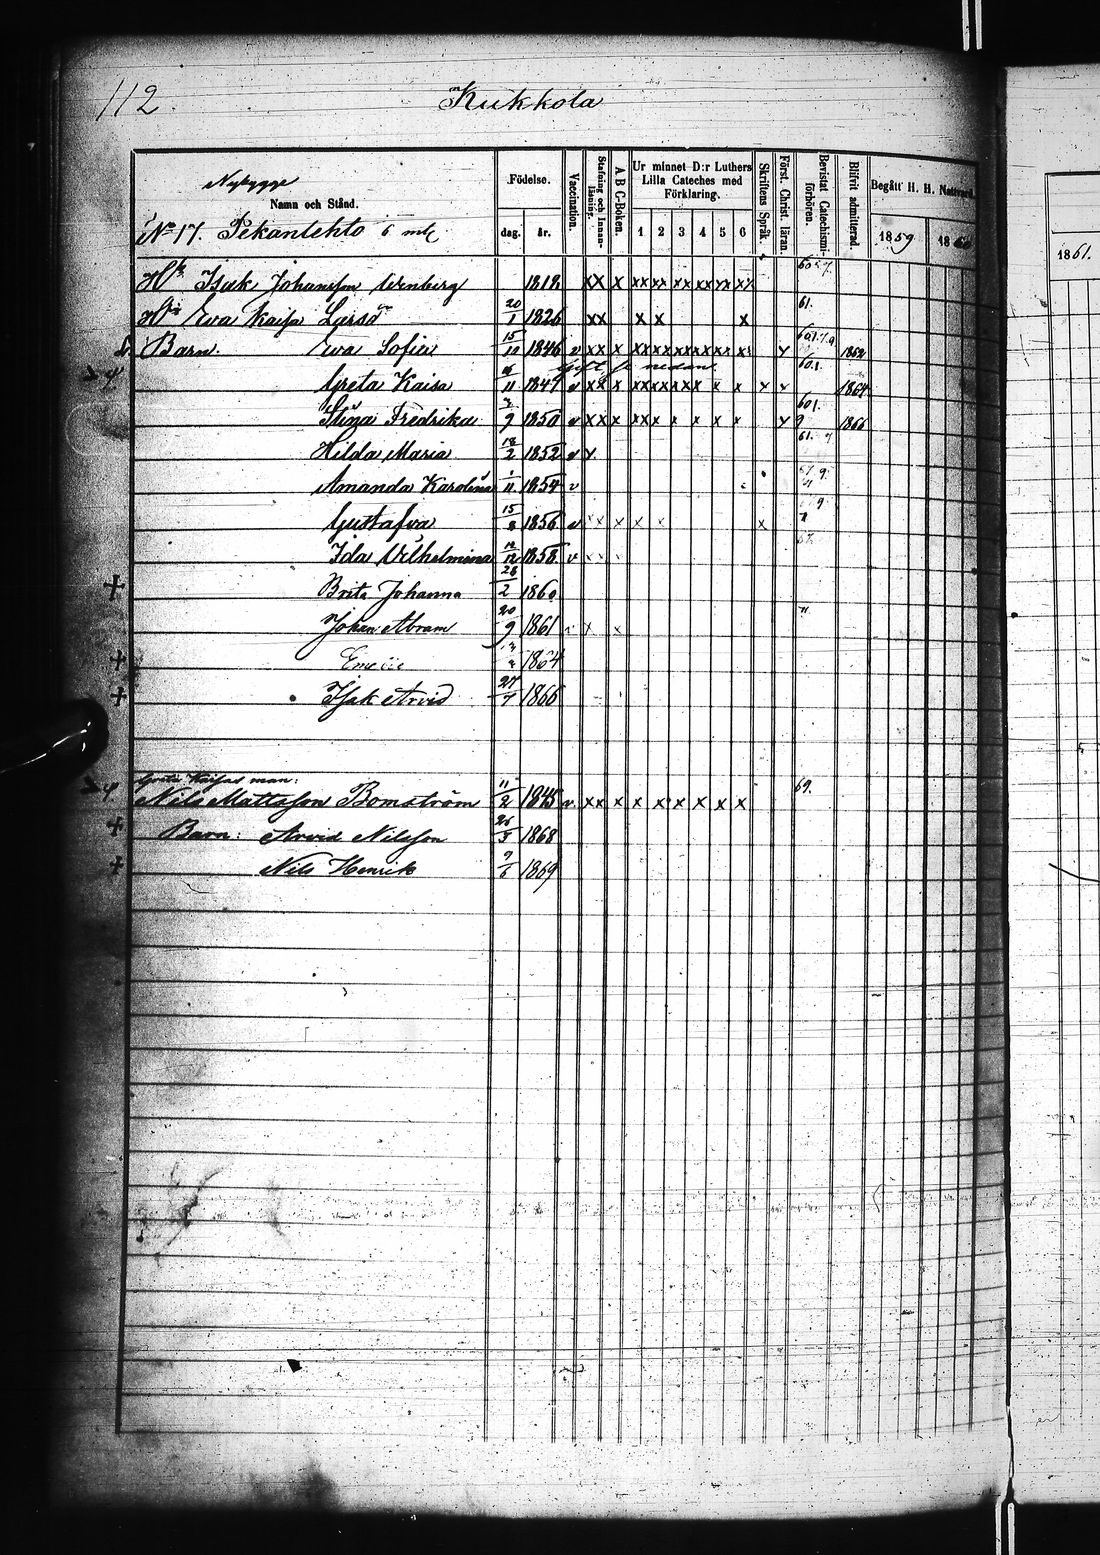 112.
Kukkola
Nybygge
Namn och Stånd.
Födelse.
dag. år.
Vaccination.
Stafning och Innanläsning.
A B C-Boken.
Ur minnet D:r Luthers Lilla Cateches med Förklaring.
1 2 3 4 5 6
Skriftens Språk.
Först. Christ. läran.
Bevistat Catechismi-förhören.
Blifvit admitterad.
Begått H. H. Nattvard.
1859 18
1861.
No 17. Pekanlehto 6 mtl
Isak Johansson 1818 xx x xx xx xx xx xx xx
Eva Kaisa Larsd 20/1 1826 xx x x x 61.
Barn. Eva Sofia 15/ 1846 v xx x xx xx xx xx xx x y 1862
gift se nedan
Greta Kaisa /11 1847 v xx x xx xx xx x x x x 60. 1864
Stina Fredrika 3/9 1850 v xx x xx x x x x x y 601. 9 1866
Hilda Maria 18/2 1852 v x 61.
Amanda Karolina 1/11 1854 v 9
Gustafva 15/8 1856 v xx x x x x 9
Ida Vilhelmina 12/12 1858 v xx 67.
+ Brita Johanna 28/2 1860
Johan Abram 20/9 1861 x x
+ 1864
+ Isak Arvid 27/7 1866
Greta Kaisas man:
Nils Mattsson Bomström 11/2 1845 v xx x x x x x x x 69.
+ Barn: Arvid Nilsson 26/3 1868
+ Nils Henrik 1869